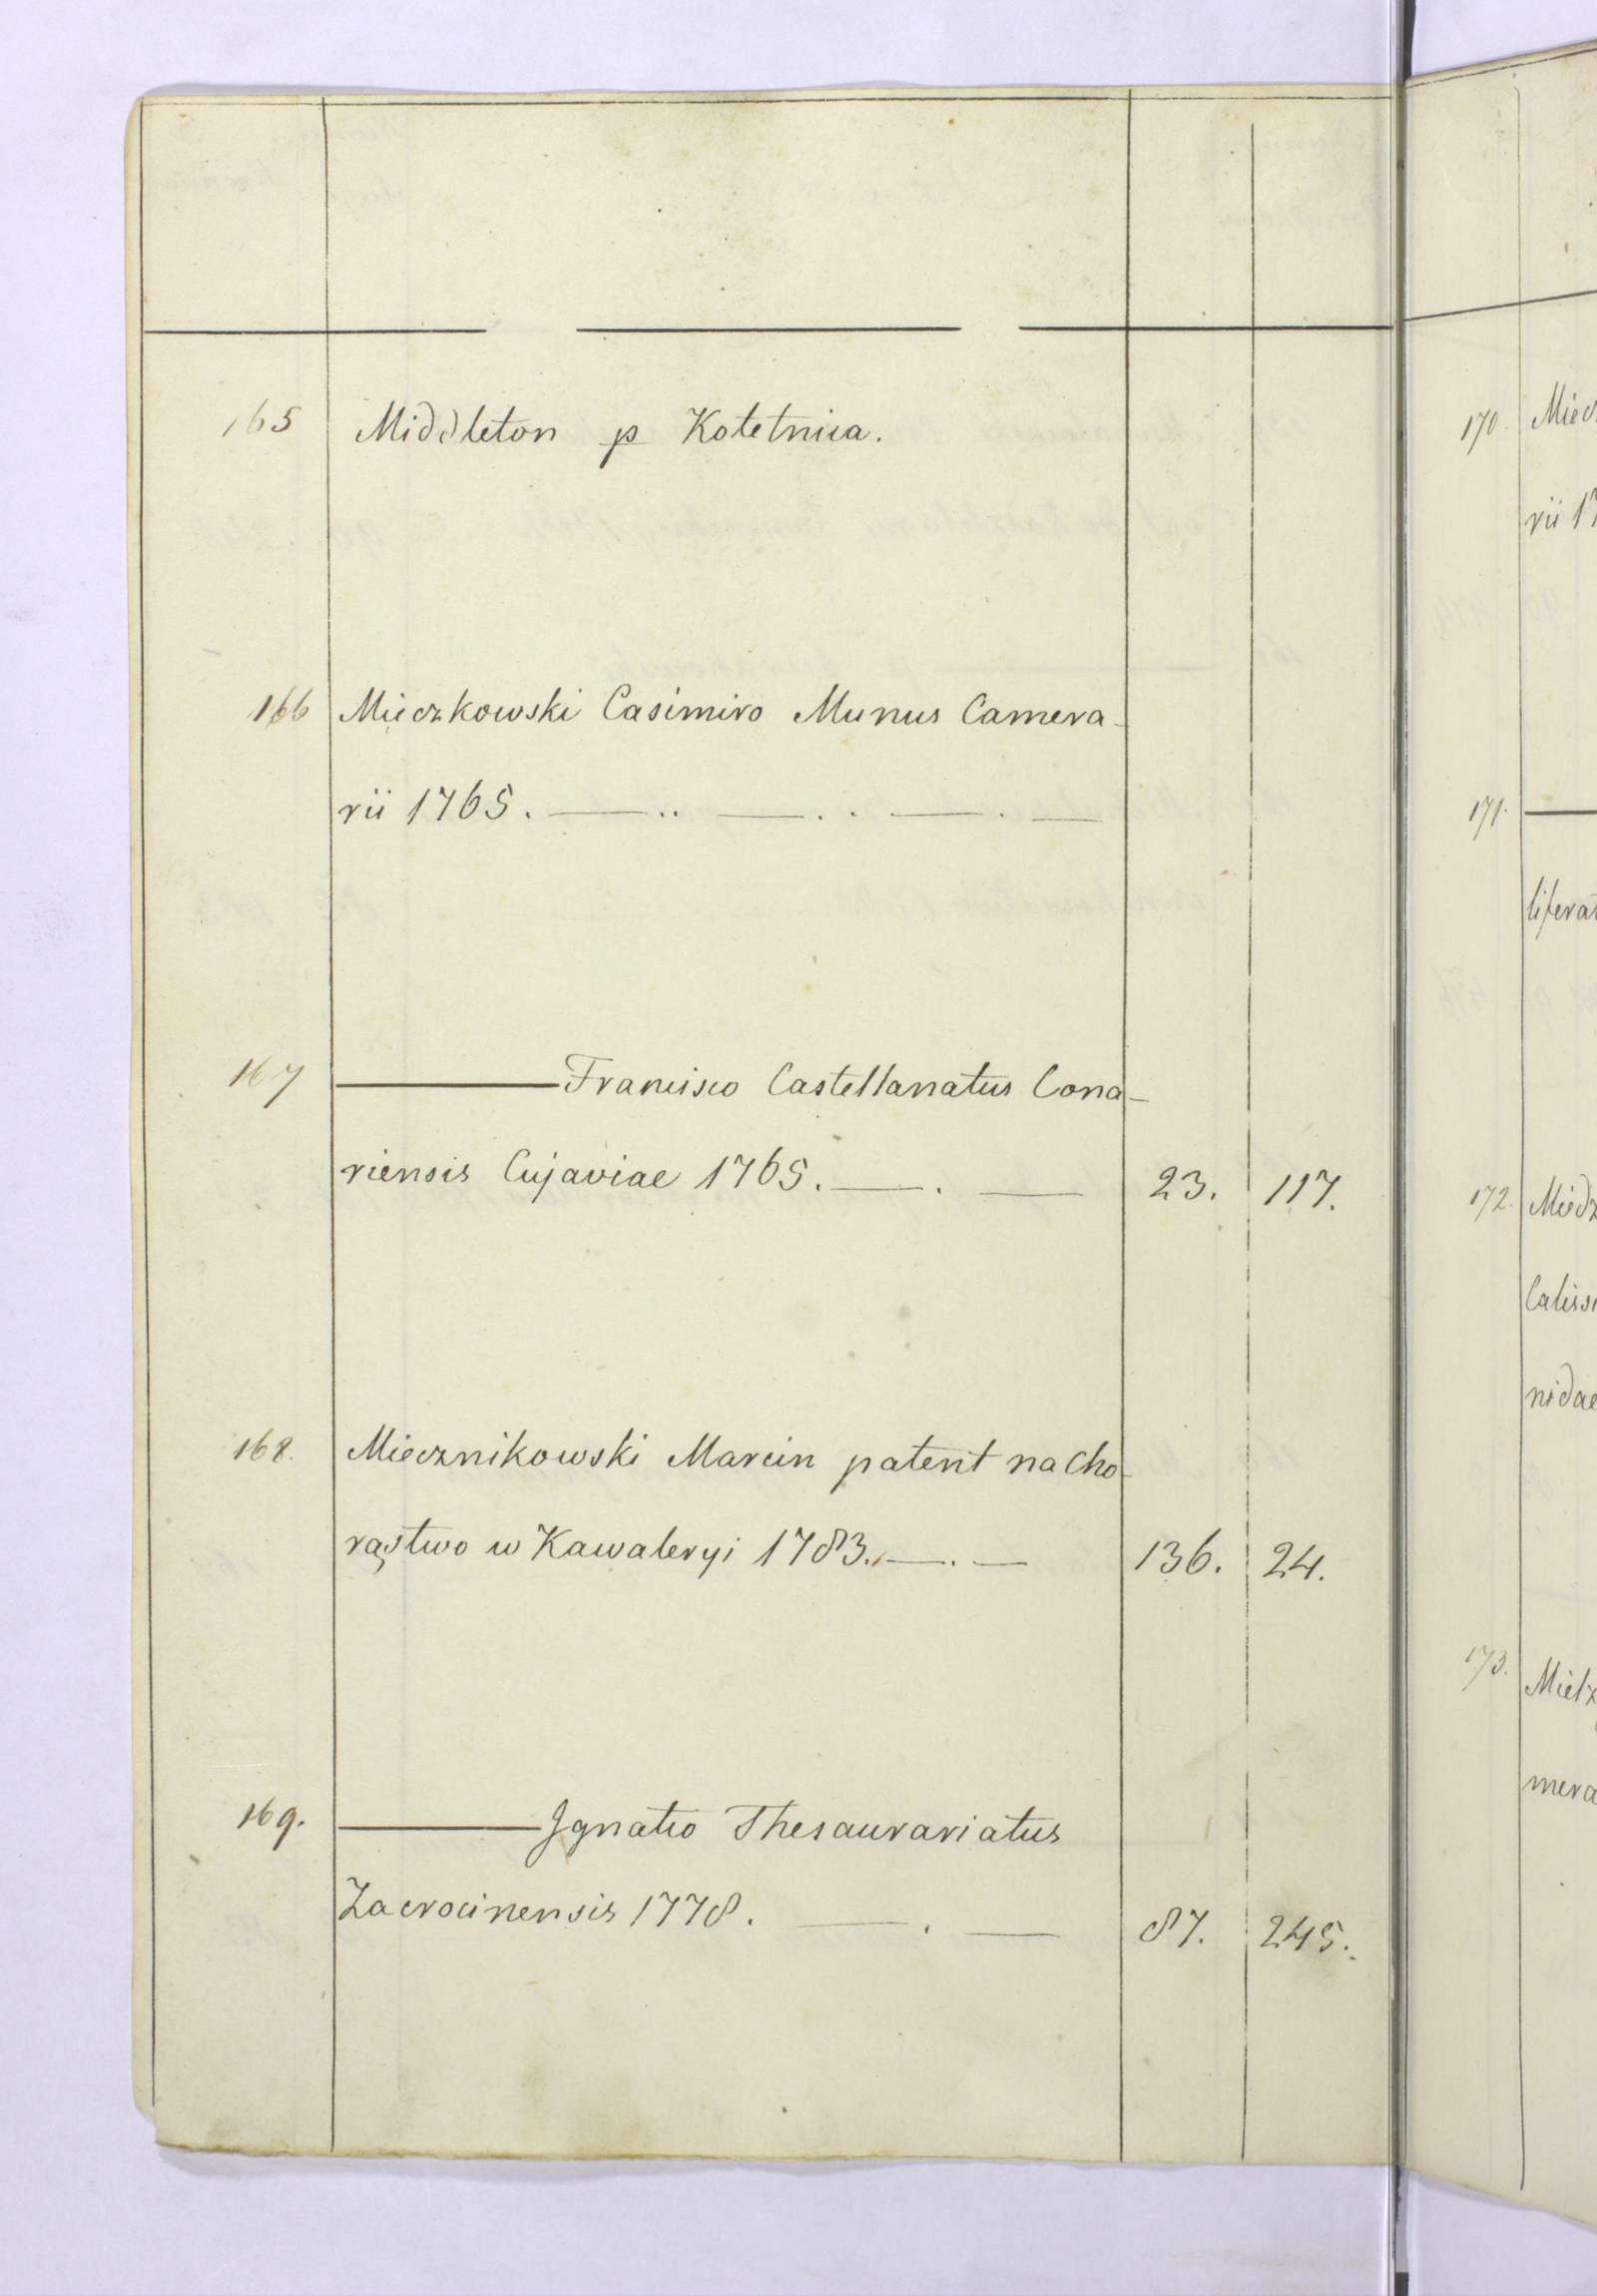 165 Middleton p Kotetnica.
166 Mieczkowski Casimiro Munus Camera-
rii 1765. — .. — . . — . —
167 — Francisco Castellanatus Cona-
riensis Cujaviae 1765. — . — 23. 117.
168. Miecznikowski Marcin patent na Cho-
rąstwo w Kawaleryi 1783. — . — 136. 24.
169. — Ignatio Thesaurariatus
Zacrocinensis 1778. — . — 87. 245.
170. Miecz
rii 17
171. —
literat
172. Miedz
Caliss
nidae
173. Mielz
mera